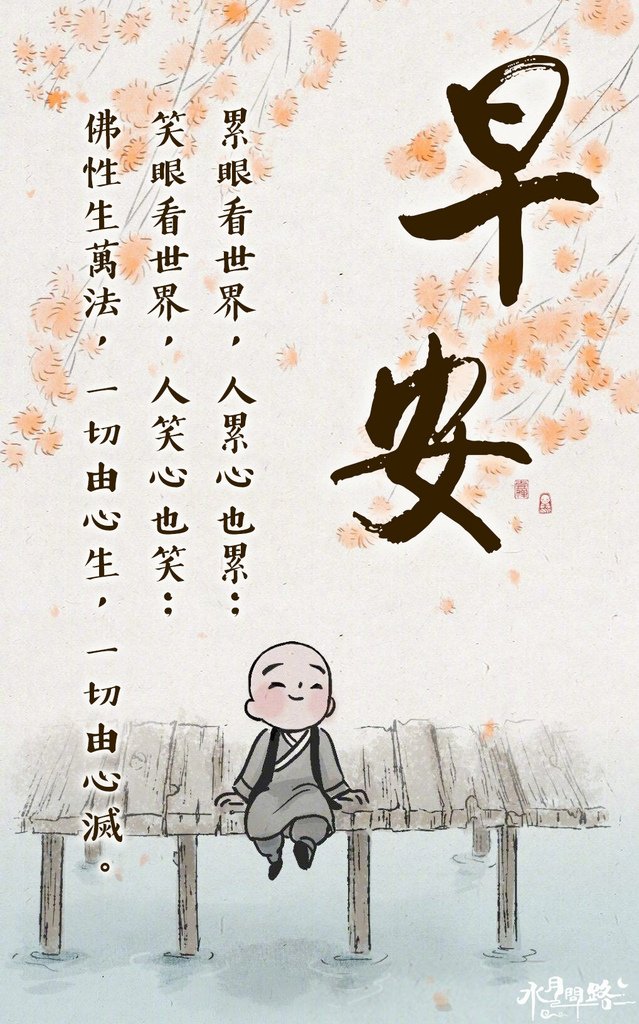 早安
累眼看世界，人累心也累；
笑眼看世界，人笑心也笑；
佛性生萬法，一切由心生，一切由心滅。
水月問路